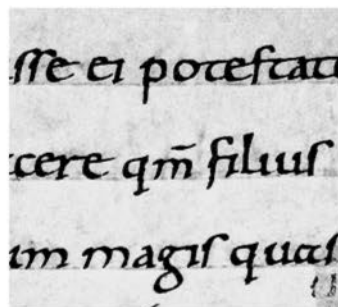 sse ei potestat
cere qm̄ filius
um magis quas